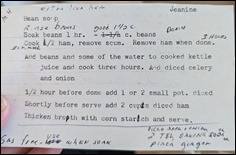 extra lean ham Jeanine
Bean soup
Rinse Beans good 14oz
Soak beans 1 hr. c. beans Drain 3 HOURS
Cook ½ ham, remove scum. Remove ham when done.
And beans and some of the water to cooked kettle
juice and cook three hours. And diced celery
and onion
1/2 hour before done add 1 or 2 small pot. diced
Shortly before serve add 2 cups diced ham
Thicken broth with corn starch and serve.
Gas free use when soak
2 TBL
pinch ginger